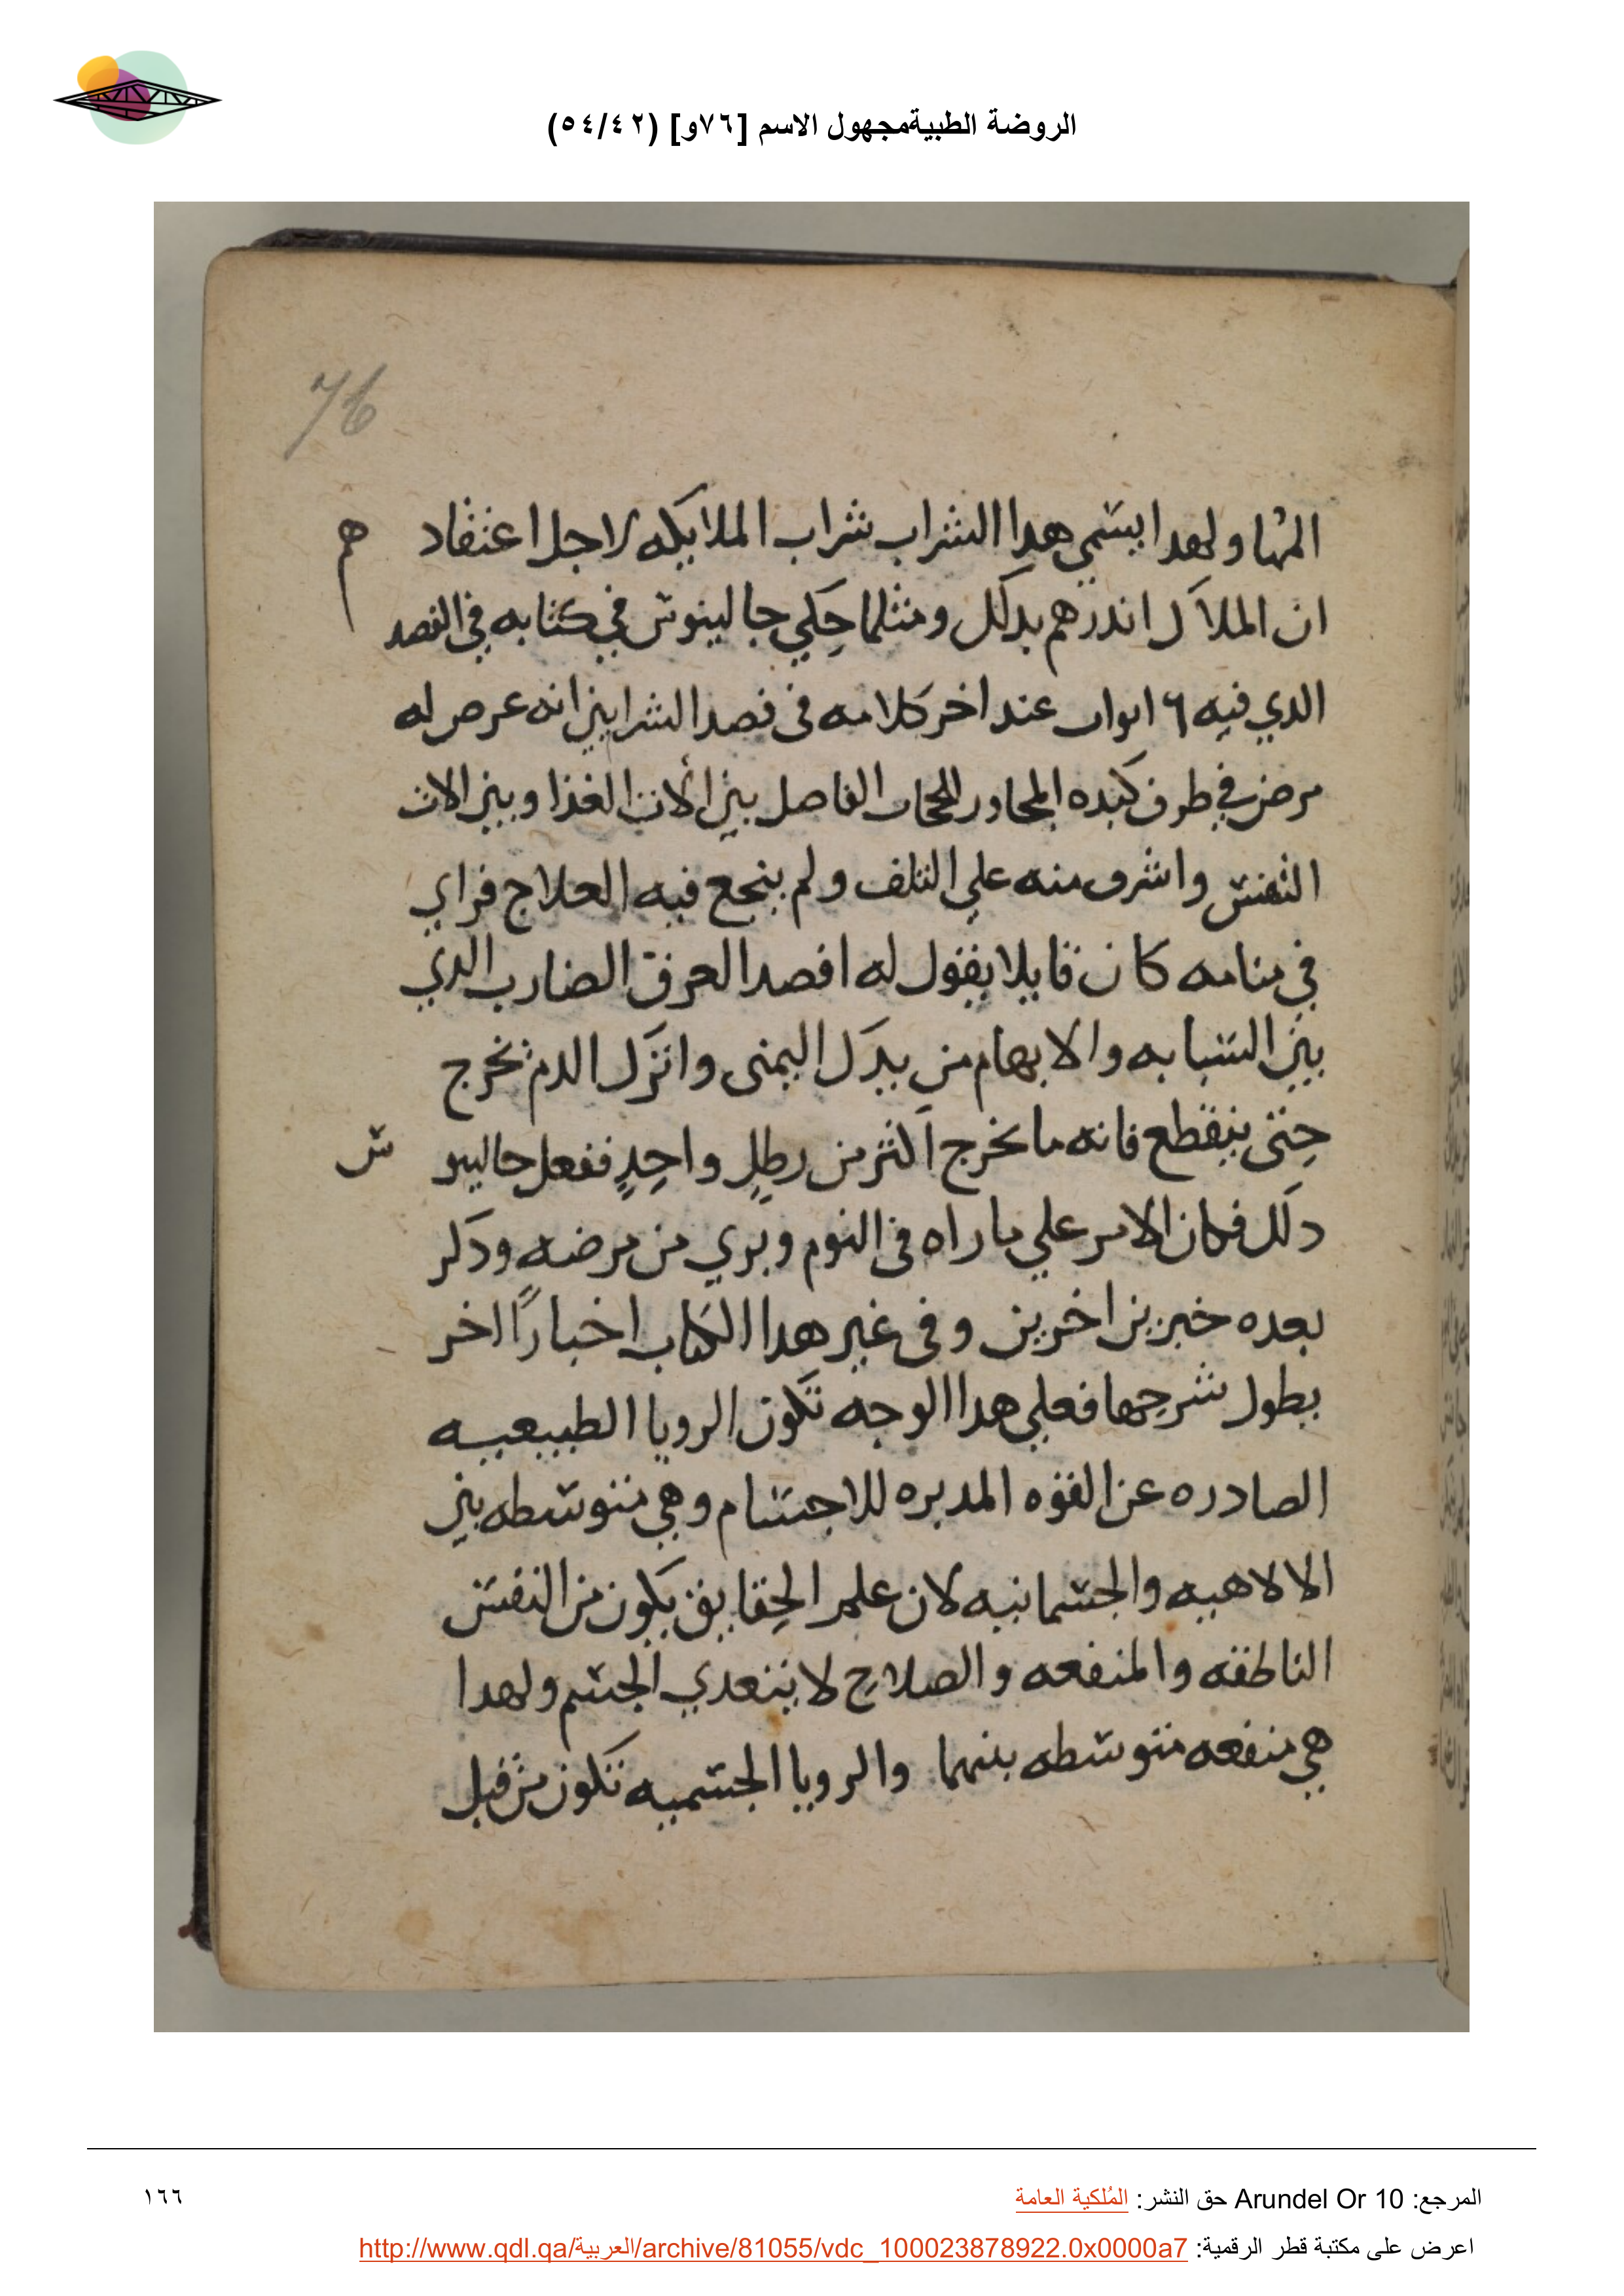 الروضة الطبيةمجهول الاسم [٧٦و] (٥٤/٤٢)
76
ولهدا يسمي هدا الشراب شراب الملايكه لاجل اعتقادهم
ان الملاك اندرهم بدلك ومثلما حكي جالينوس في كتابه في الفصد
الدي فيه ٦ ابواب عند اخر كلامه في فصد الشرايين انه عرض له
مرض في طرف كبده المجاور للحجاب الفاصل بين الات الغذا وبين الات
التنفس واشرف منه علي التلف ولم ينجع فيه العلاج فراي
في منامه كان قايلا يقول له افصد العرق الضارب الدي
بين السبابه والابهام من يدك اليمنى واترك الدم يخرج
حتى ينقطع فانه ما يخرج اكثر من رطلٍ واحدٍ ففعل جالينوس
دلك فكان الامر علي ما راه في النوم وبري من مرضه ودكر
بعده خبرين اخرين وفى غير هدا الكتاب اخبارًا اخر
يطول شرحها فعلي هدا الوجه تكون الرويا الطبيعيه
الصادره عن القوه المدبره للاجسام وهي متوسطه بين
الالاهيه والجسمانيه لان علم الحقايق يكون من النفس
الناطقه والمنفعه والصلاح لا يتعدي الجسم ولهدا
هي منفعه متوسطه بينهما والرويا الجسميه تكون من قبل
المرجع: Arundel Or 10 حق النشر: المُلكية العامة
١٦٦
اعرض على مكتبة قطر الرقمية: http://www.qdl.qa/العربية/archive/81055/vdc_100023878922.0x0000a7